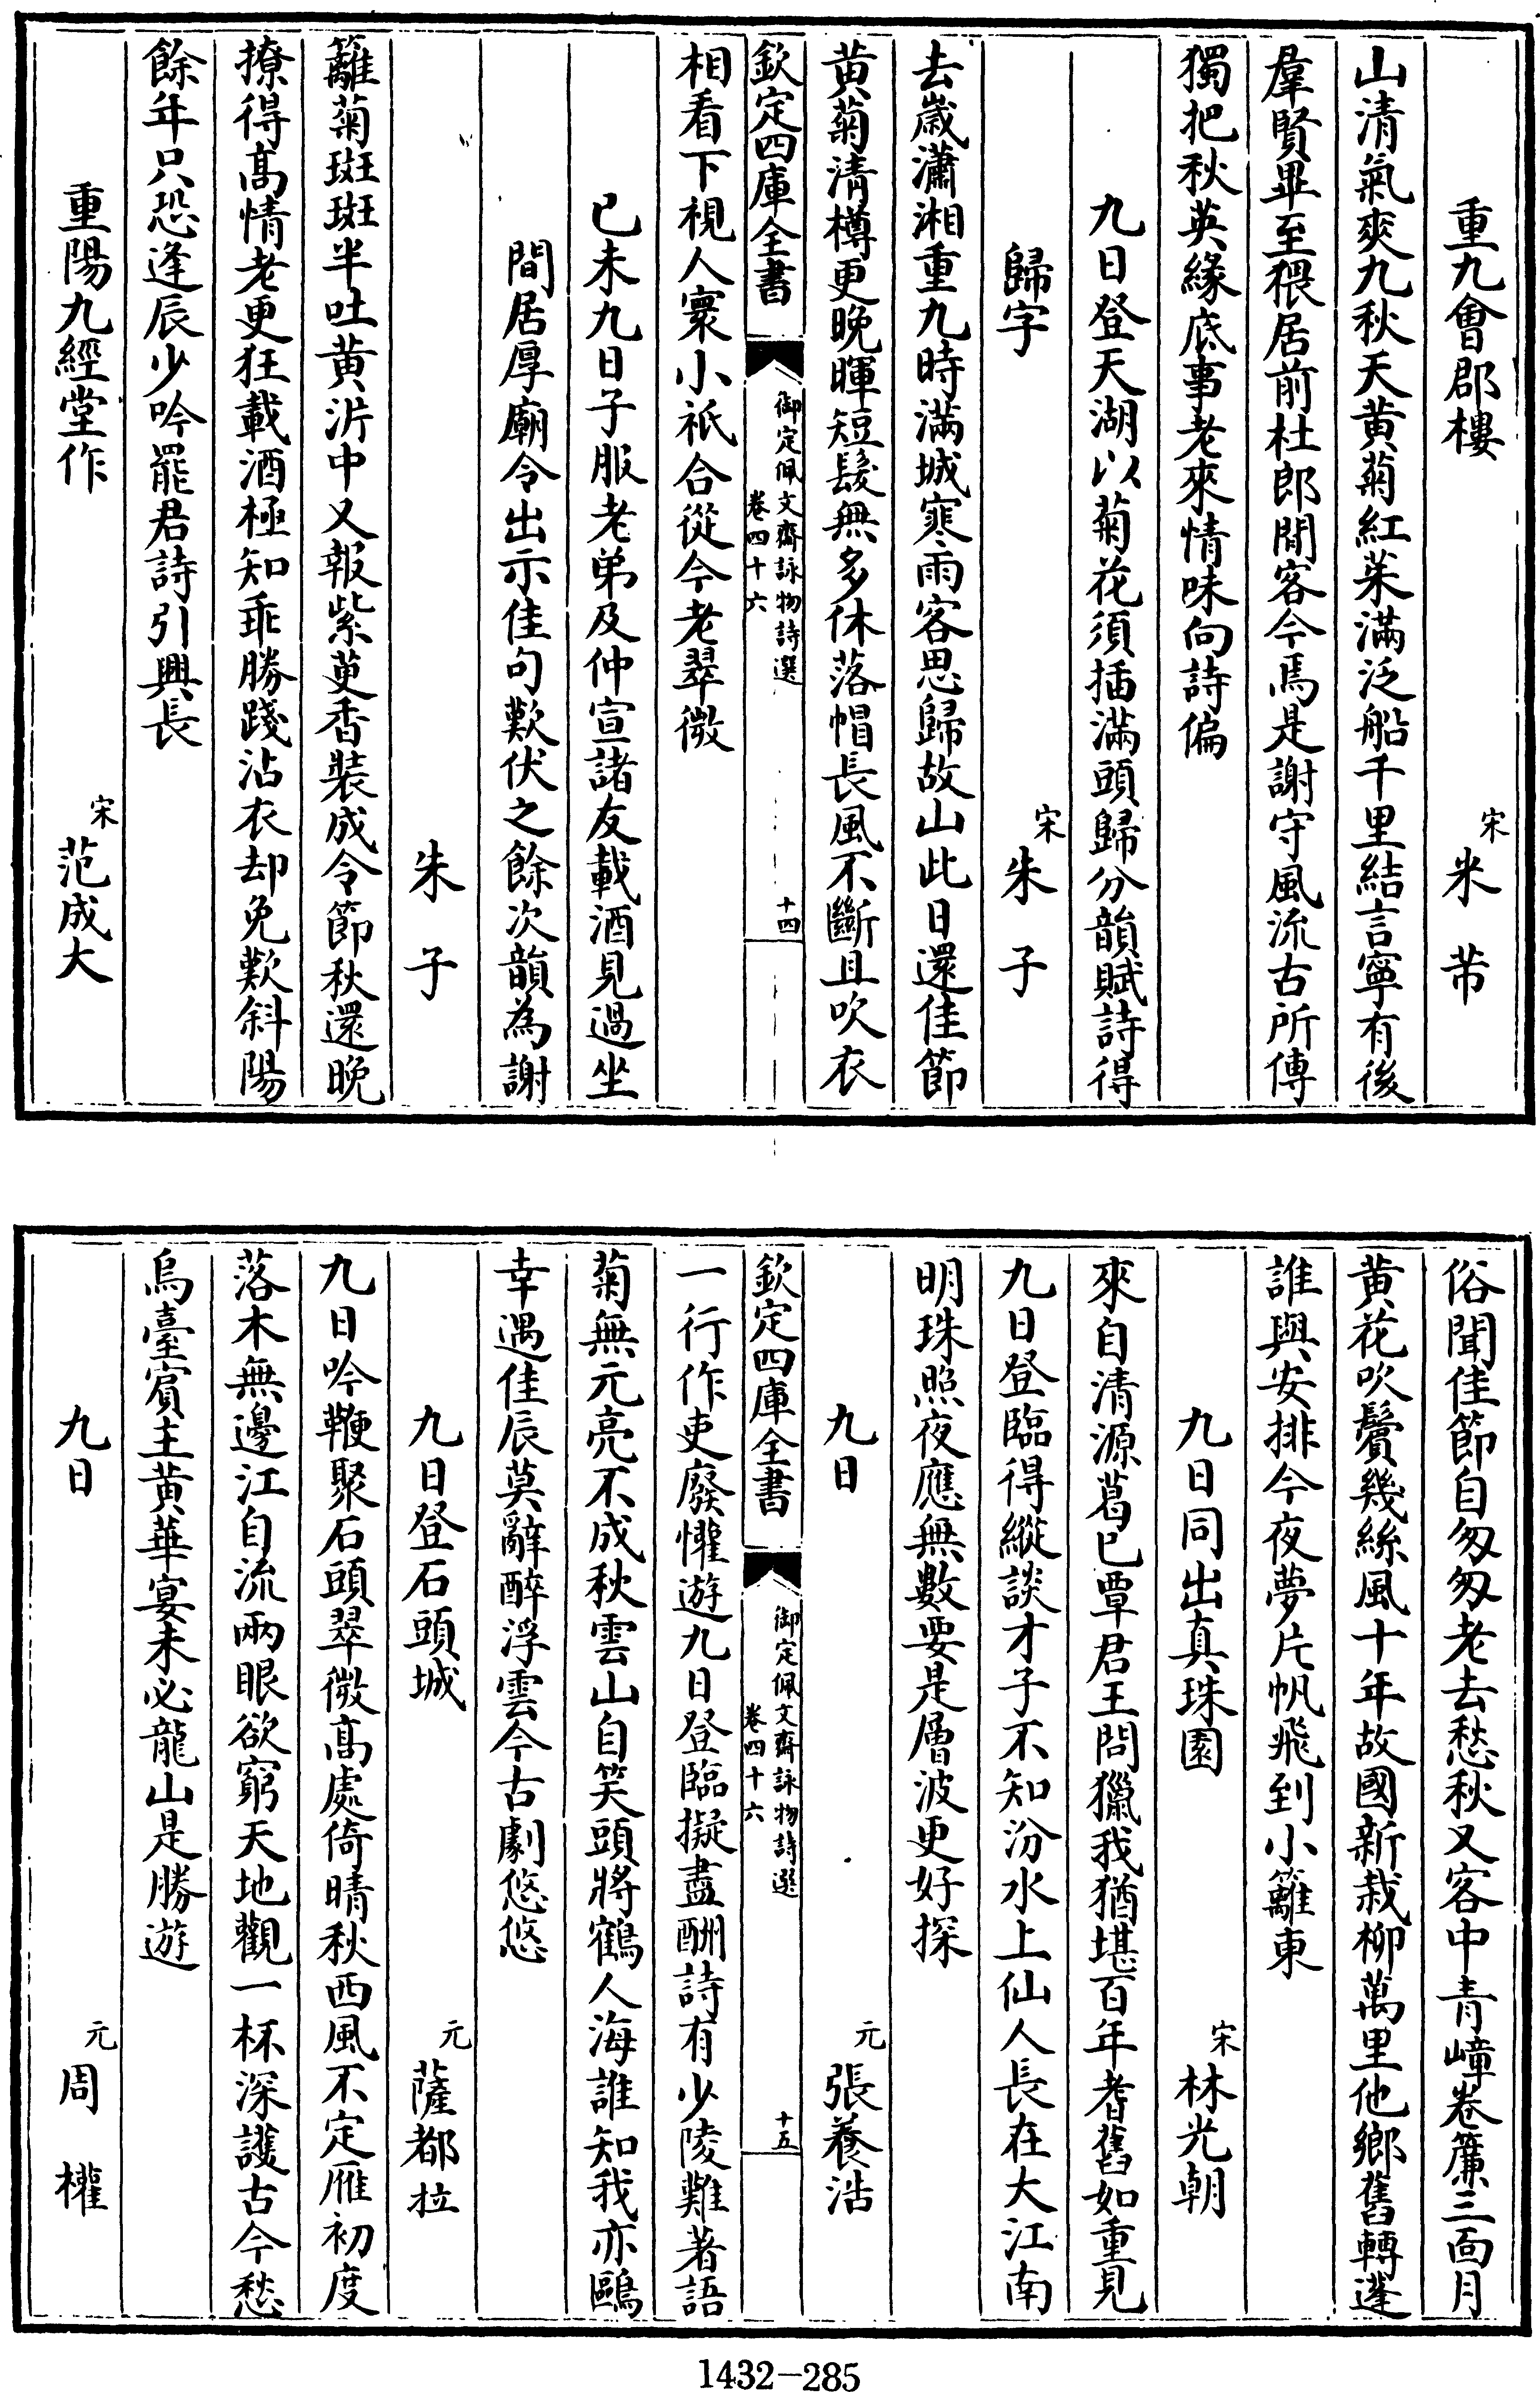 重九會郡樓
宋米芾
山清氣爽九秋天黄菊紅茱滿泛船千里結言寧有後
羣賢畢至猥居前杜郎閒客今焉是謝守風流古所傳
獨把秋英緣底事老來情味向詩偏
九日登天湖以菊花須插滿頭歸分韻賦詩得
歸字
宋朱子
去歲瀟湘重九時滿城寒雨客思歸故山此日還佳節
黄菊清樽更晚暉短髮無多休落帽長風不斷且吹衣
欽定四庫全書
御定佩文齋詠物詩選
卷四十六
十四
相看下視人寰小祗合從今老翠微
已未九日子服老弟及仲宣諸友載酒見過坐
間居厚廟令出示佳句歎伏之餘次韻為謝
朱子
籬菊斑斑半吐黄沜中又報紫萸香裝成令節秋還晚
撩得髙情老更狂載酒極知乖勝踐沾衣却免歎斜陽
餘年只恐逢辰少吟罷君詩引興長
重陽九經堂作
宋范成大
俗聞佳節自匆匆老去愁秋又客中青嶂卷簾三面月
黄花吹鬢幾絲風十年故國新栽柳萬里他鄉舊轉蓬
誰與安排今夜夢片帆飛到小籬東
九日同出真珠園
宋林光朝
來自清源葛已覃君王問獵我猶堪百年耆舊如重見
九日登臨得縱談才子不知汾水上仙人長在大江南
明珠照夜應無數要是層波更好探
九日
元張養浩
欽定四庫全書
御定佩文齋詠物詩選
卷四十六
十五
一行作吏廢懽遊九日登臨擬盡酬詩有少陵難著語
菊無元亮不成秋雲山自笑頭將鶴人海誰知我亦鷗
幸遇佳辰莫辭醉浮雲今古劇悠悠
九日登石頭城
元薩都拉
九日吟鞭聚石頭翠微髙處倚晴秋西風不定雁初度
落木無邊江自流兩眼欲窮天地觀一杯深護古今愁
烏臺賓主黄華宴未必龍山是勝遊
九日
元周權
1432-285